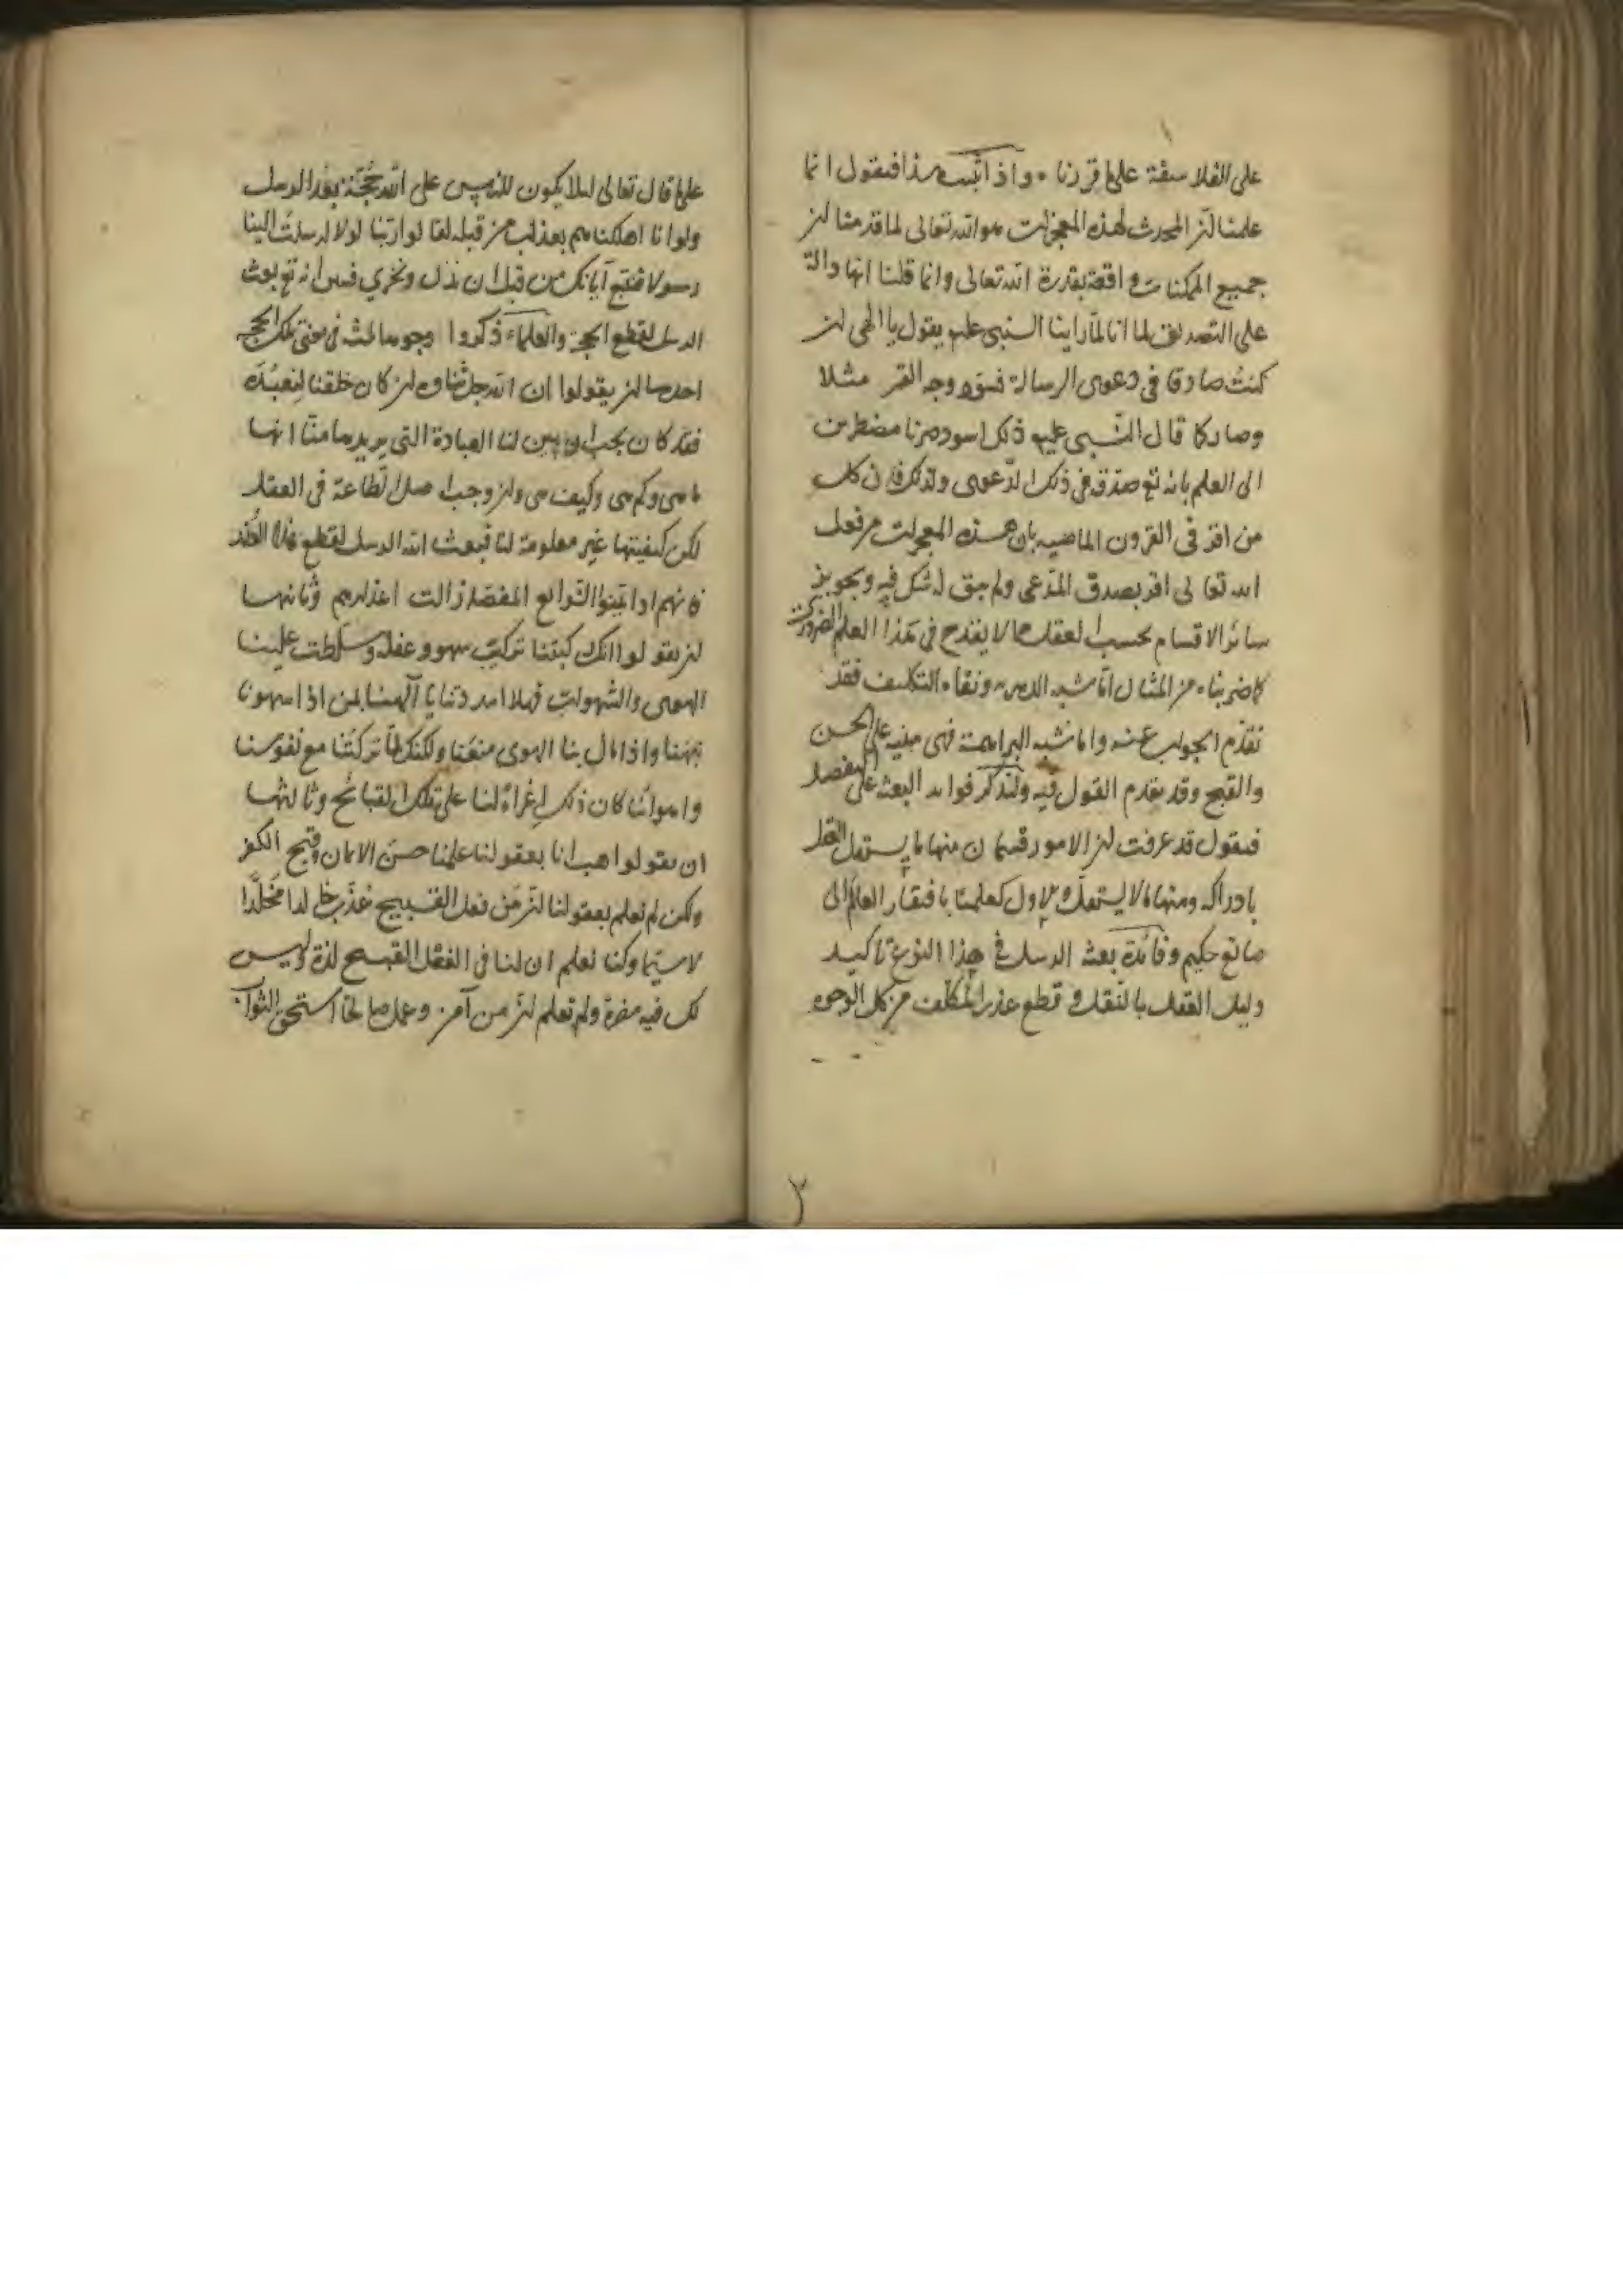 على الفلاسفة على ما قررنا . واذ اثبت هذا فنقول انما
علمنا ان المحدث لهذه المعجزات هو الله تعالى لما قدمنا ان
جميع الممكنات واقعة بقدرة الله تعالى وانما قلنا انها دالة
على التصديق لما انا لما راينا النبى علم يقول يا الهى ان
كنت صادقا فى دعوى الرسالة فسود وجه القمر مثلا
وصار كما قال النبى عليه ذلك اسود صرنا مضطرين
الى العلم بانه تع صدقه فى ذلك الدعوى ولذلك فان كل
من اقر فى القرون الماضيه بان هذه المعجزات من فعل
الله تعالى اقر بصدق المدعى ولم يبق له شك فيه وتجويز
سائر الاقسام بحسب العقل مما لا يقدح فى هذا العلم الضرورى
كما ضربناه من المثال اما شبه الدهرية ونفاه التكليف فقد
تقدم الجواب عنه واما شبه البراهمة فهى مبنيه على الحسن
والقبح وقد تقدم القول فيه ولنذكر فوايد البعثه على التفصيل
فنقول قد عرفت ان الامور قسمان منها ما يستقل العقل
بادراكه ومنها ما لا يستقل والاول كعلمنا بافتقار العالم الى
صانع حكيم وفائدة بعثه الرسل فى هذا النوع تاكيد
دليل العقل بالنقل و قطع عذر المكلف من كل الوجوه
٢
على ما قال تعالى لئلا يكون للناس على الله حجة بعد الرسل
ولو انا اهلكناهم بعذاب من قبله لقالوا ربنا لولا ارسلت الينا
رسولا فنتبع آياتك من قبل ان نذل ونخزي فبين انه تع بعث
الرسل لقطع الحجة والعلماء ذكروا وجوها ثلثه فى معنى تلك الحجه
احدها ان يقولوا ان الله جل ثناوه ان كان خلقنا لنعبده
فقد كان يجب ان يبين لنا العبادة التى يريدها منا انها
ما هى وكم هى وكيف هى وان وجب اصل الطاعة فى العقل
لكن كيفيتها غير معلومة لنا فبعث الله الرسل لقطع هذا العذر
فانهم اذا بينوا الشرائع المفصله زالت اعذارهم وثانيها
ان يقولوا انك ركبتنا تركيب سهو وغفله وسلطت علينا
الهوى والشهوات فهلا امددتنا يا الهنا بمن اذا سهونا
نبهنا واذا مال بنا الهوى منعنا ولكنك لما تركتنا مع نفوسنا
واهوائنا كان ذلك اغراءً لنا على تلك القبائح وثالثها
ان يقولوا هب انا بعقولنا علمنا حسن الايمان وقبح الكفر
ولكن لم نعلم بعقولنا ان من فعل القبيح عذب خالدا مخلدا
لاسيما وكنا نعلم ان لنا فى الفعل القبيح لذة وليس
لك فيه مضرة ولم نعلم ان من آمن وعمل صالحا استحق الثواب